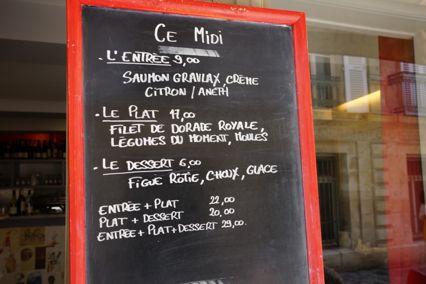 Ce Midi
- L'ENTRÉE 9,00
SAUMON GRAVLAX CRÈME
CITRON / ANETH
- LE PLAT 17,00
FILET DE DORADE ROYALE,
LÉGUMES DU MOMENT, MOULES
- LE DESSERT 6,00
FIGUE RÔTIE, CHOUX, GLACE
ENTRÉE + PLAT 22,00
PLAT + DESSERT 20,00
ENTRÉE + PLAT + DESSERT 29,00.